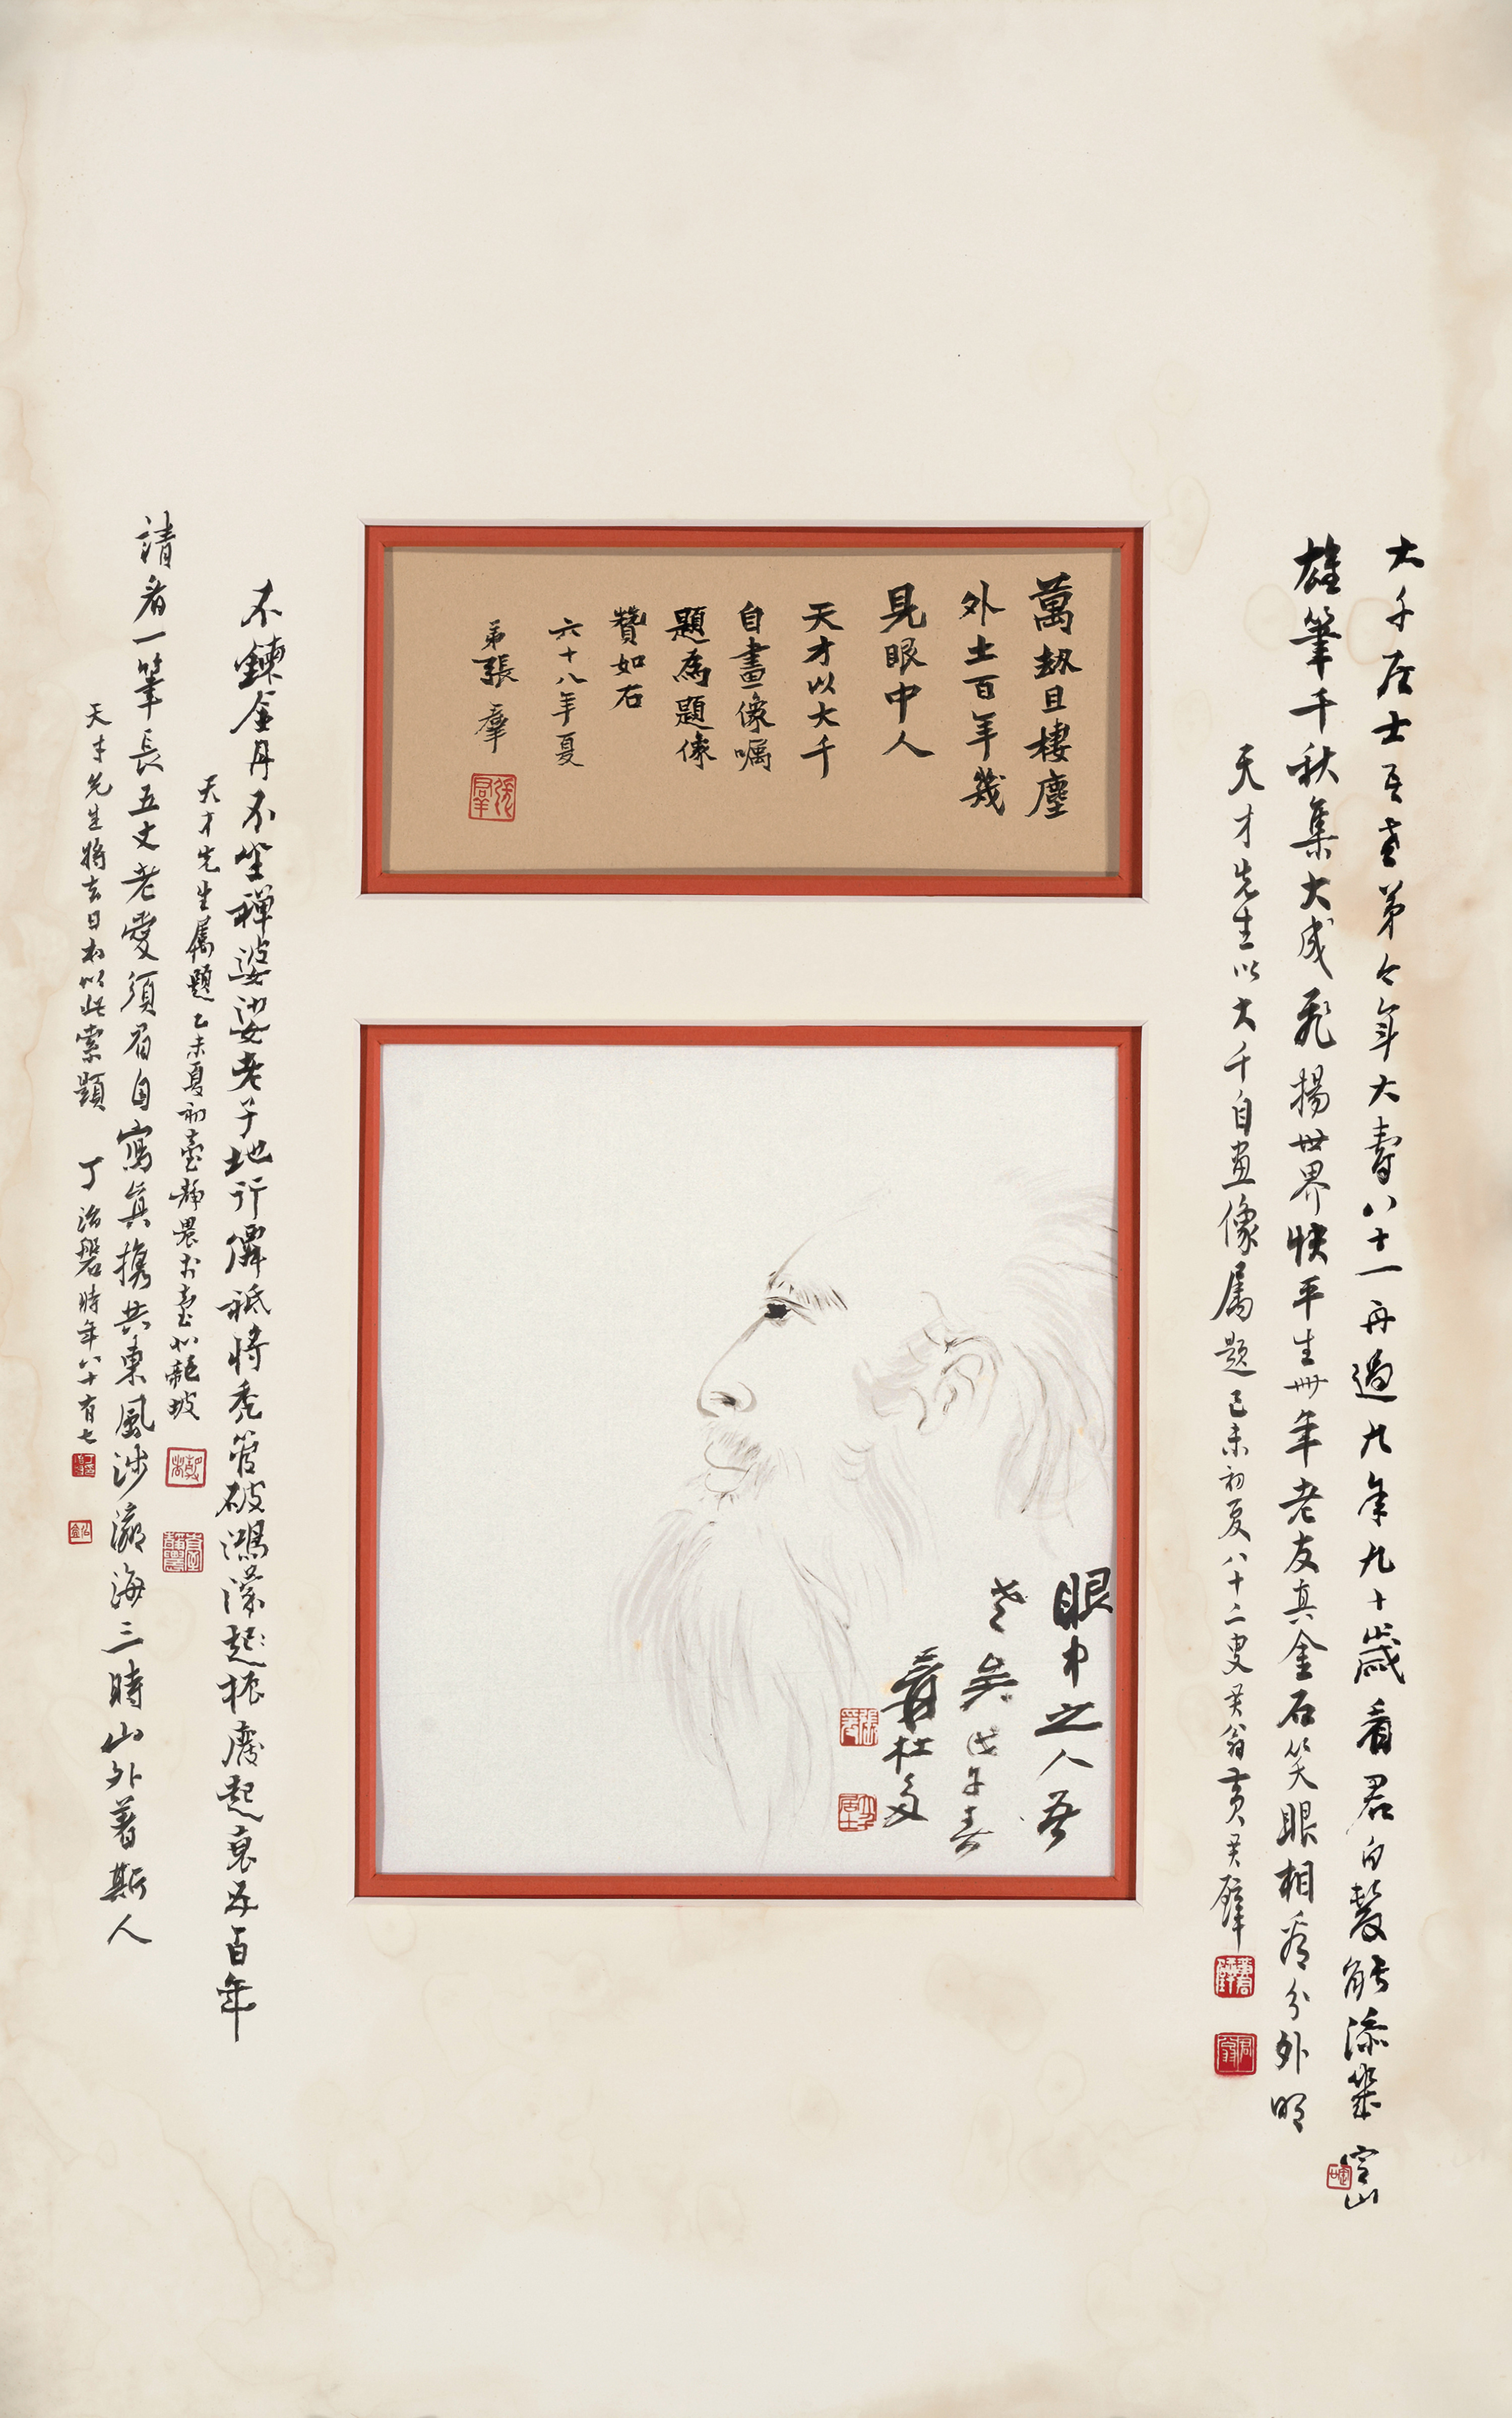 大千居士吾老弟今年大壽八十一再過九年九十歲看君白髮能添幾 堂山
雄筆千秋集大成飛揚世界快平生卅年老友真金石笑眼相看分外明
天才先生以大千自畫像屬題己未初夏八十二叟君翁黃君璧
萬劫且棲塵
外土百年幾
見眼中人
天才以大千
自畫像囑
題為題像
贊如右
六十八年夏
弟張羣
眼中之人吾
老矣戊午春
爰杜多
不鍊金丹不坐禪婆娑老子地行僊祇將禿管破鴻濛起振廢起衰五百年
天才先生屬題己未夏初臺靜農於臺北龍坡
請看一筆長五丈老愛須眉自寫真攜共東風涉瀛海三時山外著斯人
天才先生將去日本以此索題 丁治磐時年八十有七